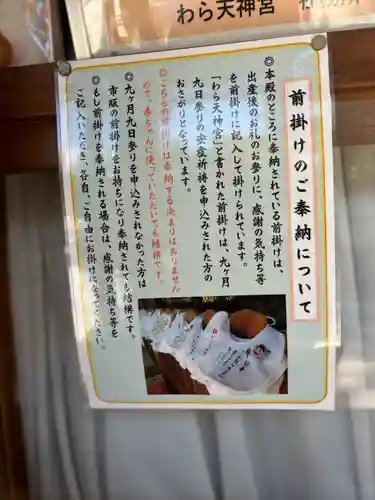 わら天神宮
前掛けのご奉納について
◎本殿のところに奉納されている前掛けは、
出産後のお礼のお参りに、感謝の気持ち等
を前掛けに記入して掛けられています。
「わら天神宮」と書かれた前掛けは、九ヶ月
九日参りの安産祈祷を申込みされた方の
おさがりとなっています。
◎こちらのは前掛けは奉納する決まりはありません
ので、赤ちゃんに使っていただいても結構です。
◎九ヶ月九日参りを申込みされなかった方は
市販の前掛けをお持ちになり奉納されても結構です。
◎もし前掛けを奉納される場合は、感謝の気持ち等を
ご記入いただき、各自、ご自由にお掛けになってください。